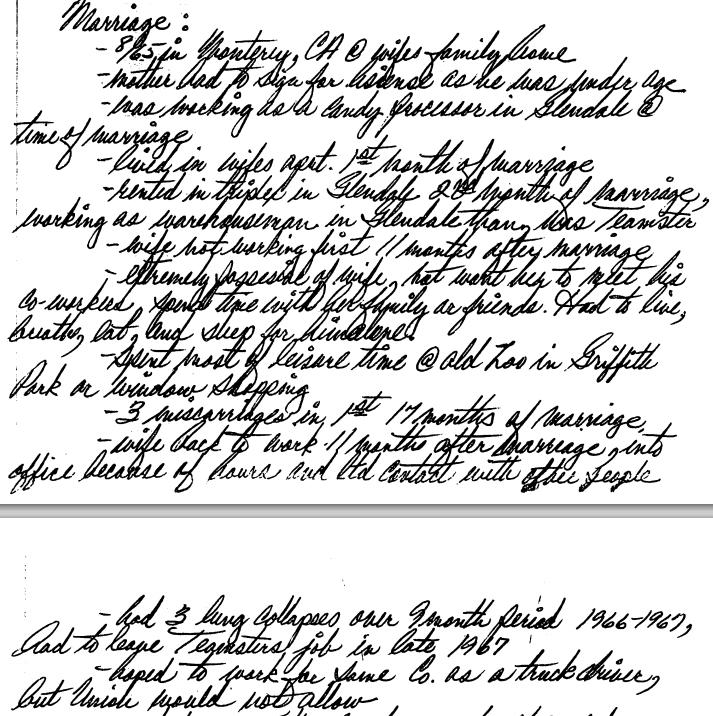 Marriage:
- 8/65 in Monterey, CA @ wifes family home
- mother had to sign for lisense as he was under age
- was working as a candy processor in Glendale @
time of marriage
- lived in wifes aprt. 1st month of marriage
- rented in triplex in Glendale 2nd month of marriage,
working as warehouseman in Glendale than, was Teamster
- wife not working first 11 months after marriage
- extremely possesive of wife, not want her to meet his
co-workers, spend time with her family or friends. Had to live,
breath, eat, and sleep for him alone.
- spent most of leisure time @ old Zoo in Griffith
Park or window shopping
- 3 miscarriages in 1st 17 months of marriage,
- wife back to work 11 months after marriage, into
office because of hours and ltd contact with other people
- had 3 lung collapses over 9 month period 1966-1967,
had to leave Teamsters job in late 1967
- hoped to work for same Co. as a truck driver,
but Union would not allow